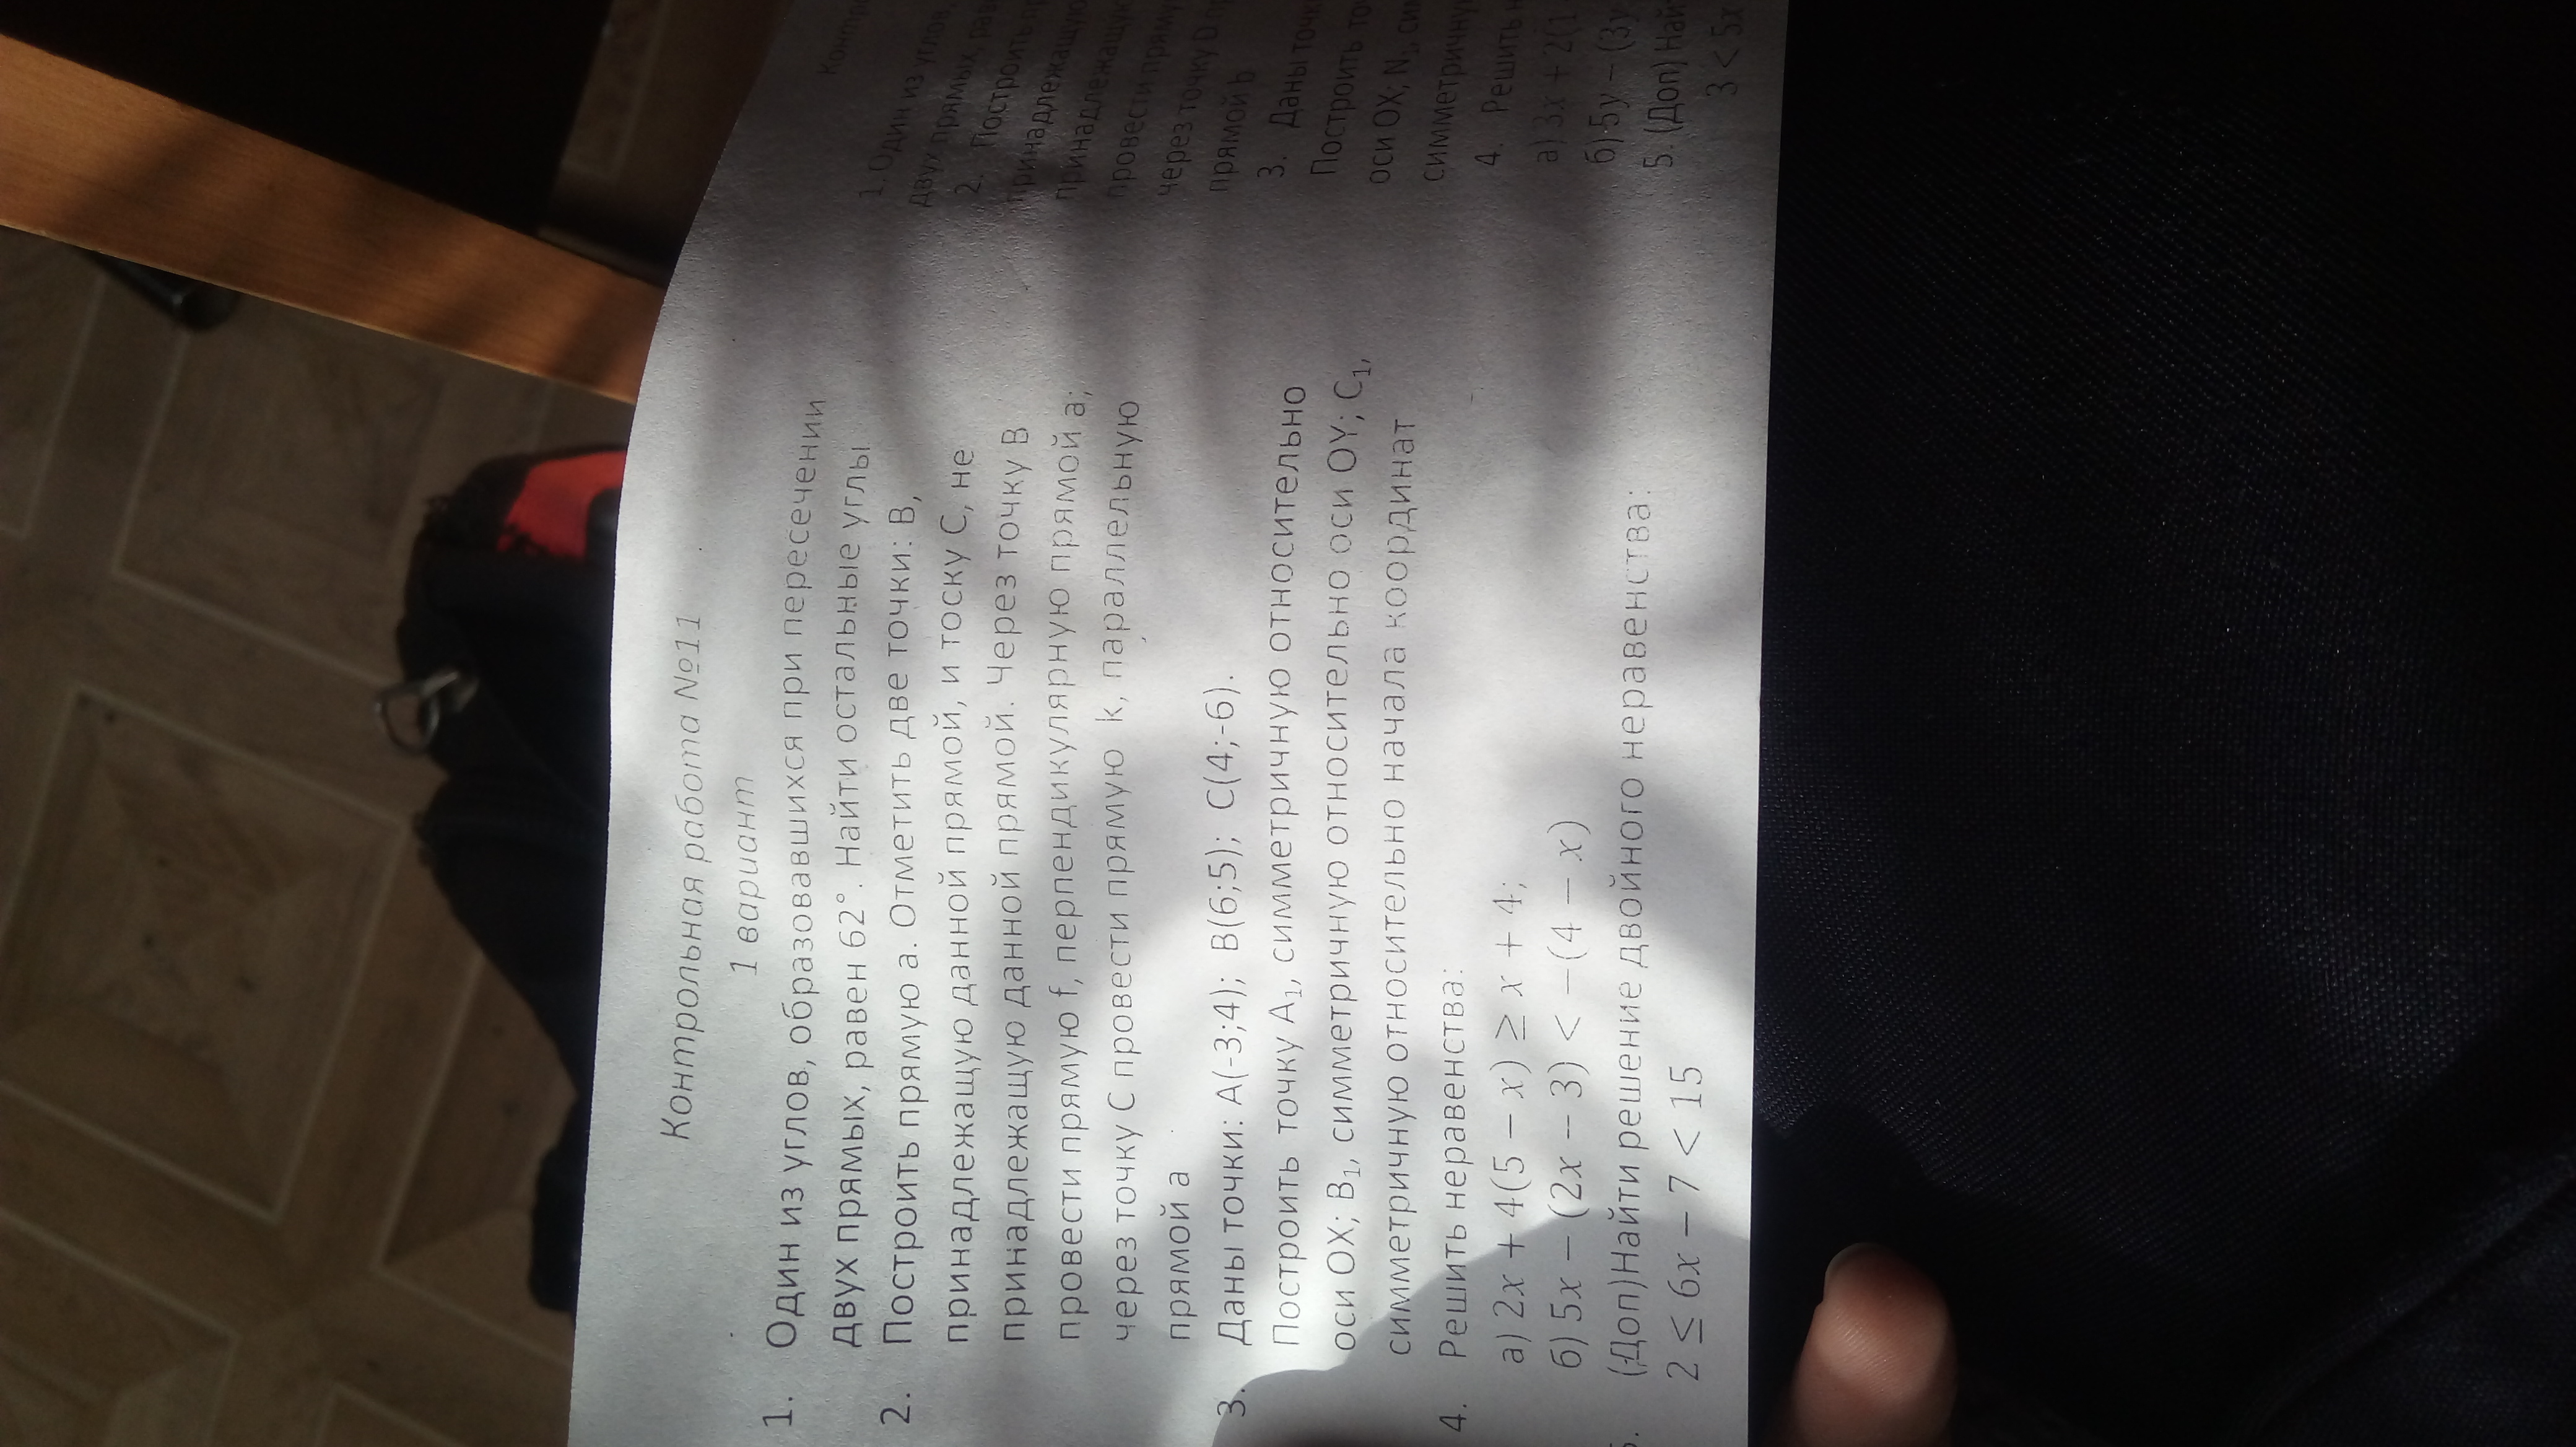 Контрольная работа №11
1 вариант
1. Один из углов, образовавшихся при пересечении
двух прямых, равен 62°. Найти остальные углы
2. Построить прямую а. Отметить две точки: В,
принадлежащую данной прямой, и тоску С, не
принадлежащую данной прямой. Через точку В
провести прямую f, перпендикулярную прямой а;
через точку С провести прямую k, параллельную
прямой а
3. Даны точки: А(-3;4); В(6;5); С(4;-6).
Построить точку А₁, симметричную относительно
оси ОХ; В₁, симметричную относительно оси OY; С₁,
симметричную относительно начала координат
4. Решить неравенства:
а) 2x + 4(5 − x) ≥ x + 4;
б) 5x − (2x − 3) < −(4 − x)
(Доп)Найти решение двойного неравенства:
2 ≤ 6x − 7 < 15
1. Один из углов,
двух прямых,
2. Построить
принадлежащую
принадлежащую
провести
через точку D
прямой b
3. Даны
Построить
оси ОХ; N₁,
4. Решить
а) 3x + 2(1
б) 5y − (3y
5. (Доп)
3 < 5x